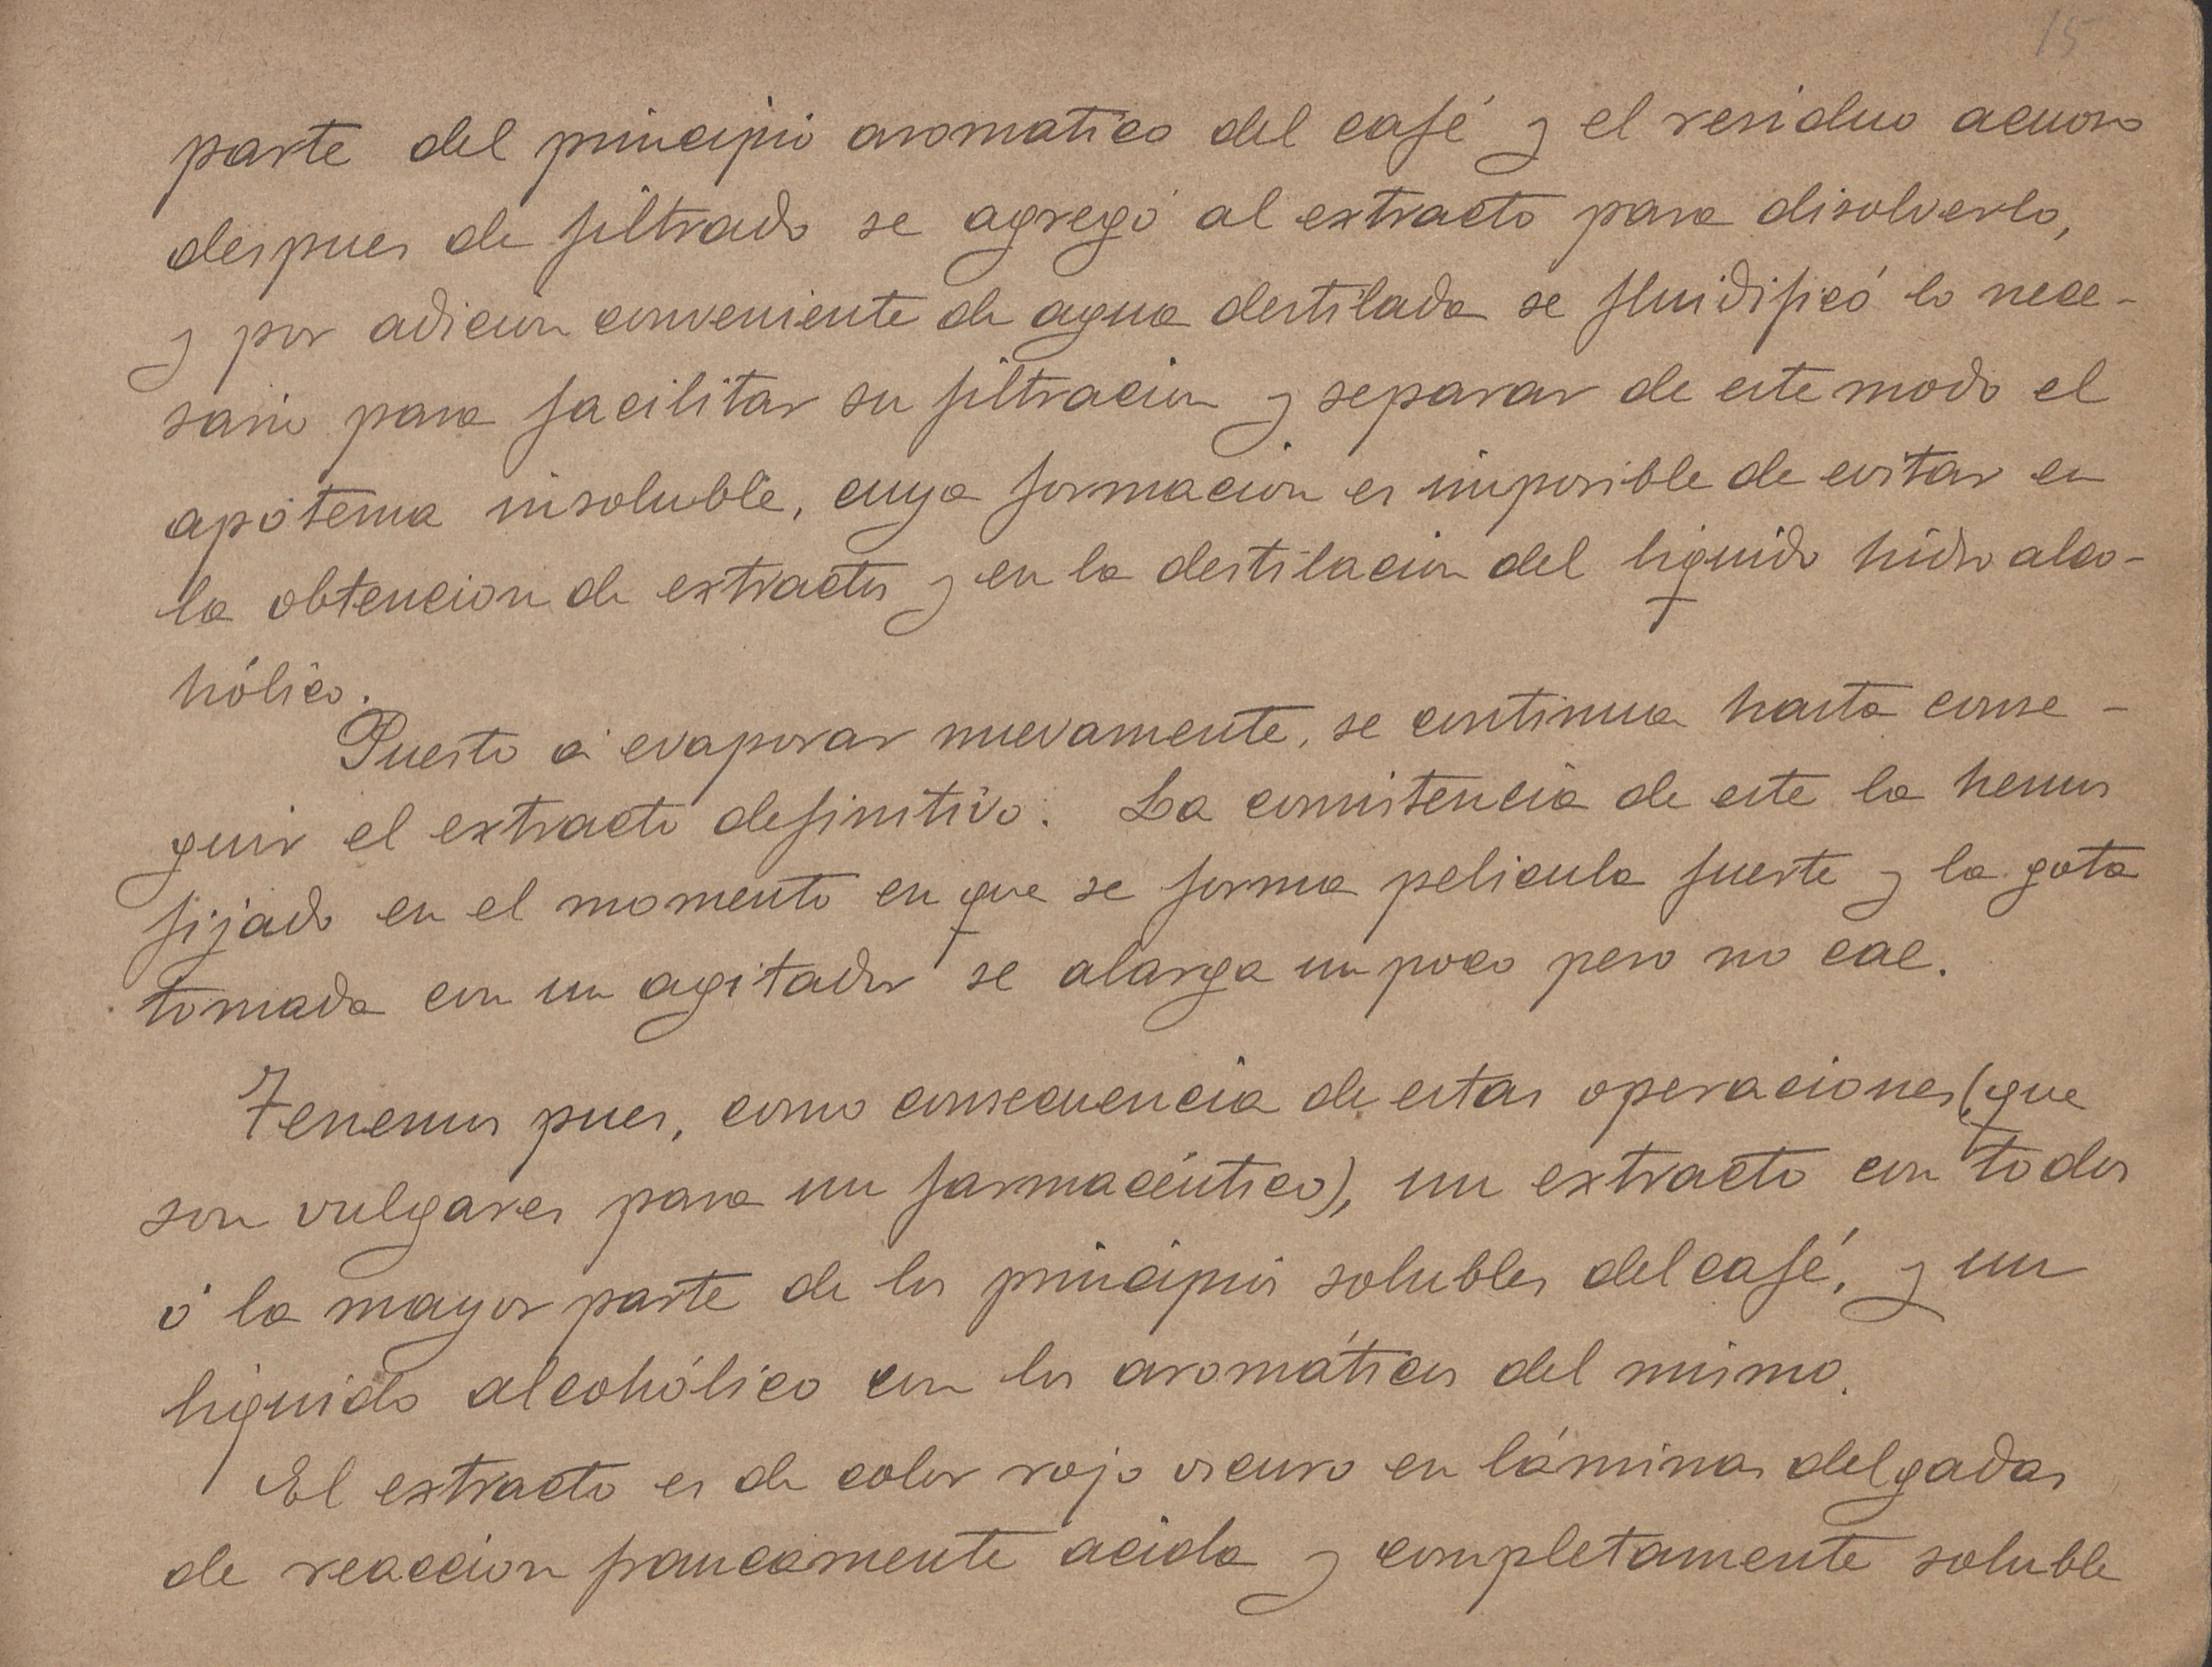 15
parte del principio aromatico del café y el residuo acuoso
despues de filtrado se agregó al extracto para disolverlo,
y por adicion conveniente de agua destilada se fluidificó lo nece-
sario para facilitar su filtracion y separar de este modo el
apótema insoluble, cuya formacion es imposible de evitar en
la obtencion de extractos y en la destilacion del liquido hidroalco-
hólico.
Puesto á evaporar nuevamente, se continua hasta conse-
guir el extracto definitivo. La consistencia de este la hemos
fijado en el momento en que se forma pelicula fuerte y la gota
tomada con un agitador se alarga un poco pero no cae.
Tenemos pues, como consecuencia de estas operaciones (que
son vulgares para un farmacéutico), un extracto con todos
ó la mayor parte de los principios solubles del café, y un
liquido alcohólico con los aromáticos del mismo.
El extracto es de color rojo oscuro en láminas delgadas
de reaccion francamente acida y completamente soluble